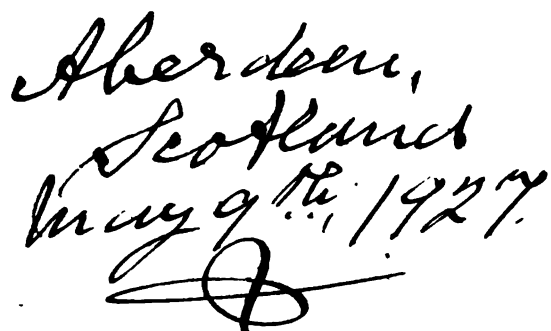 Aberdeen,
Scotland
May 9th., 1927.